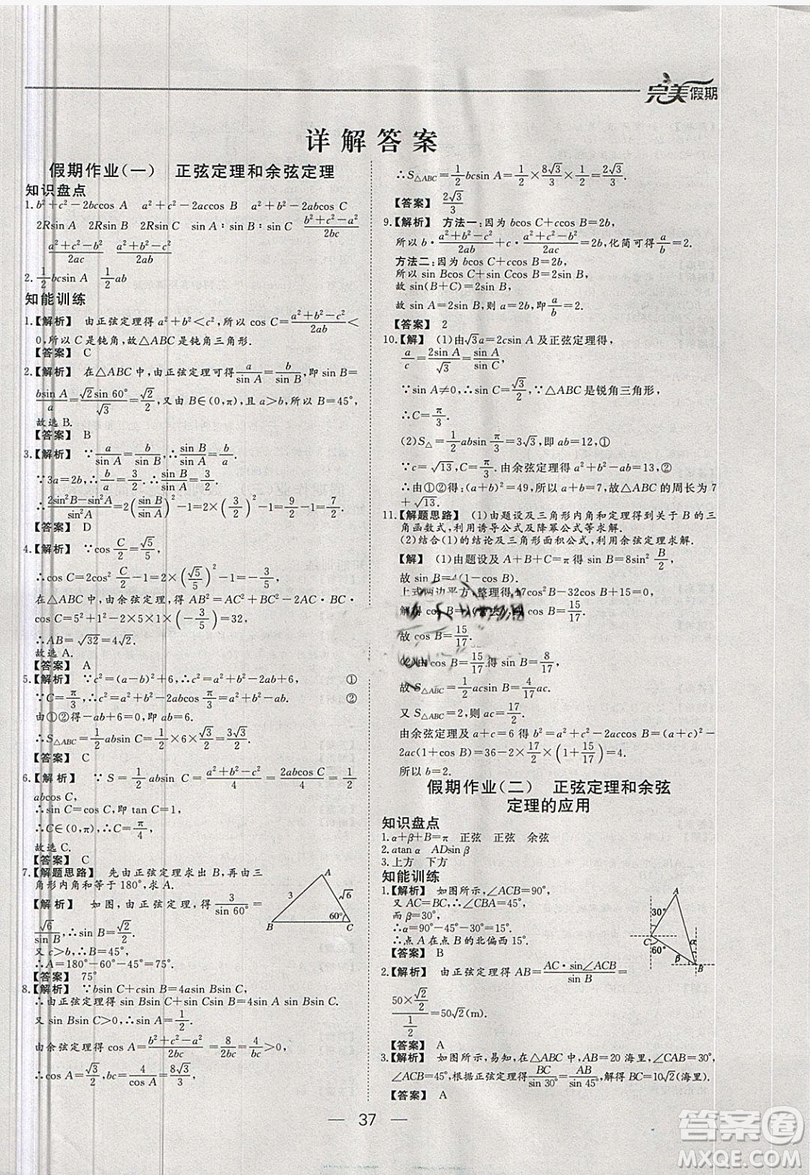 完美假期
详解答案
假期作业(一) 正弦定理和余弦定理
知识盘点
1.b²+c²-2bccos A a²+c²-2accos B a²+b²-2abcos C
2Rsin A 2Rsin B 2Rsin C sin A∶sin B∶sin C (b²+c²-a²)/2bc
(a²+c²-b²)/2ac (a²+b²-c²)/2ab
2.1/2 bcsin A 1/2 ab
知能训练
1.【解析】 由正弦定理得a²+b²<c²,所以cos C=(a²+b²-c²)/2ab<
0,所以C是钝角,故△ABC是钝角三角形.
【答案】 C
2.【解析】 在△ABC中,由正弦定理可得a/sin A=b/sin B,所以sin B=
bsin A/a=√2sin 60°/√3=√2/2,又由B∈(0,π),且a>b,所以B=45°,
故选B.
【答案】 B
3.【解析】 ∵a/sin A=b/sin B,∴sin B/sin A=b/a.
∵3a=2b,∴b/a=3/2,∴sin B/sin A=3/2.
∴(2sin²B-sin²A)/sin²A=2(sin B/sin A)²-1=2×(3/2)²-1=9/2-1=7/2.
【答案】 D
4.【解析】 ∵cos C/2=√5/5,
∴cos C=2cos² C/2-1=2×(√5/5)²-1=-3/5.
在△ABC中,由余弦定理得AB²=AC²+BC²-2AC·BC·
cos C=5²+1²-2×5×1×(-3/5)=32,
∴AB=√32=4√2.
故选A.
【答案】 A
5.【解析】 ∵c²=(a-b)²+6,∴c²=a²+b²-2ab+6, ①
∵C=π/3,∴c²=a²+b²-2abcos π/3=a²+b²-ab. ②
由①②得-ab+6=0,即ab=6.
∴S△ABC=1/2 absin C=1/2×6×√3/2=3√3/2.
【答案】 C
6.【解析】 ∵S=1/2 absin C=(a²+b²-c²)/4=2abcos C/4=1/2 abcos C,
∴sin C=cos C,即tan C=1.
∵C∈(0,π),∴C=π/4.
故选C.
【答案】 C
7.【解题思路】 先由正弦定理求出B,再由三
角形内角和等于180°,求出A.
【解析】 如图,由正弦定理,得3/sin 60°=
√6/sin B,∴sin B=√2/2.
又c>b,∴B=45°,
∴A=180°-60°-45°=75°.
【答案】 75°
A
3
√6
60°
B
C
8.【解析】 ∵bsin C+csin B=4asin Bsin C,
∴由正弦定理得sin Bsin C+sin Csin B=4sin Asin Bsin C.
又sin Bsin C>0,∴sin A=1/2.
由余弦定理得cos A=(b²+c²-a²)/2bc=8/2bc=4/bc>0,
∴cos A=√3/2,bc=4/cos A=8√3/3,
∴S△ABC=1/2 bcsin A=1/2×8√3/3×1/2=2√3/3.
【答案】 2√3/3
9.【解析】 方法一:因为bcos C+ccos B=2b,
所以b·(a²+b²-c²)/2ab+c·(a²+c²-b²)/2ac=2b,化简可得a/b=2.
方法二:因为bcos C+ccos B=2b,
所以sin Bcos C+sin Ccos B=2sin B,
故sin(B+C)=2sin B,
故sin A=2sin B,则a=2b,即a/b=2.
【答案】 2
10.【解】 (1)由√3a=2csin A及正弦定理得,
a/c=2sin A/√3=sin A/sin C.
∵sin A≠0,∴sin C=√3/2,∵△ABC是锐角三角形,
∴C=π/3.
(2)S△=1/2 absin π/3=3√3,即ab=12, ①
∵c=√13,C=π/3,由余弦定理得a²+b²-ab=13, ②
∴由①②得:(a+b)²=49,a+b=7,故△ABC的周长为7
+√13.
11.【解题思路】 (1)由题设及三角形内角和定理得到关于B的三
角函数式,利用诱导公式及降幂公式等求解.
(2)结合(1)的结论及三角形面积公式,利用余弦定理求解.
【解】 (1)由题设及A+B+C=π得sin B=8sin² B/2,
故sin B=4(1-cos B).
上式两边平方,整理得17cos²B-32cos B+15=0,
解得cos B=1(舍去),cos B=15/17.
故cos B=15/17.
(2)由cos B=15/17得sin B=8/17,
故S△ABC=1/2 acsin B=4/17 ac.
又S△ABC=2,则ac=17/2.
由余弦定理及a+c=6得b²=a²+c²-2accos B=(a+c)²-
2ac(1+cos B)=36-2×17/2×(1+15/17)=4.
所以b=2.
假期作业(二) 正弦定理和余弦
定理的应用
知识盘点
1.α+β+B=π 正弦 正弦 余弦
2.atan α ADsin β
3.上方 下方
知能训练
1.【解析】 如图所示,∠ACB=90°,
又AC=BC,∴∠CBA=45°,
而β=30°,
∴α=90°-45°-30°=15°.
∴点A在点B的北偏西15°.
【答案】 B
A
30°
C
60°
β
α
B
2.【解析】 由正弦定理得AB=AC·sin∠ACB/sin B=
(50×√2/2)/(1/2)=50√2(m).
【答案】 A
3.【解析】 如图所示,由已知条件可得,∠CAB=30°,∠ABC=105°,
AB=20(海里),∴∠BCA=45°.
37
答案圈
MXQE.COM